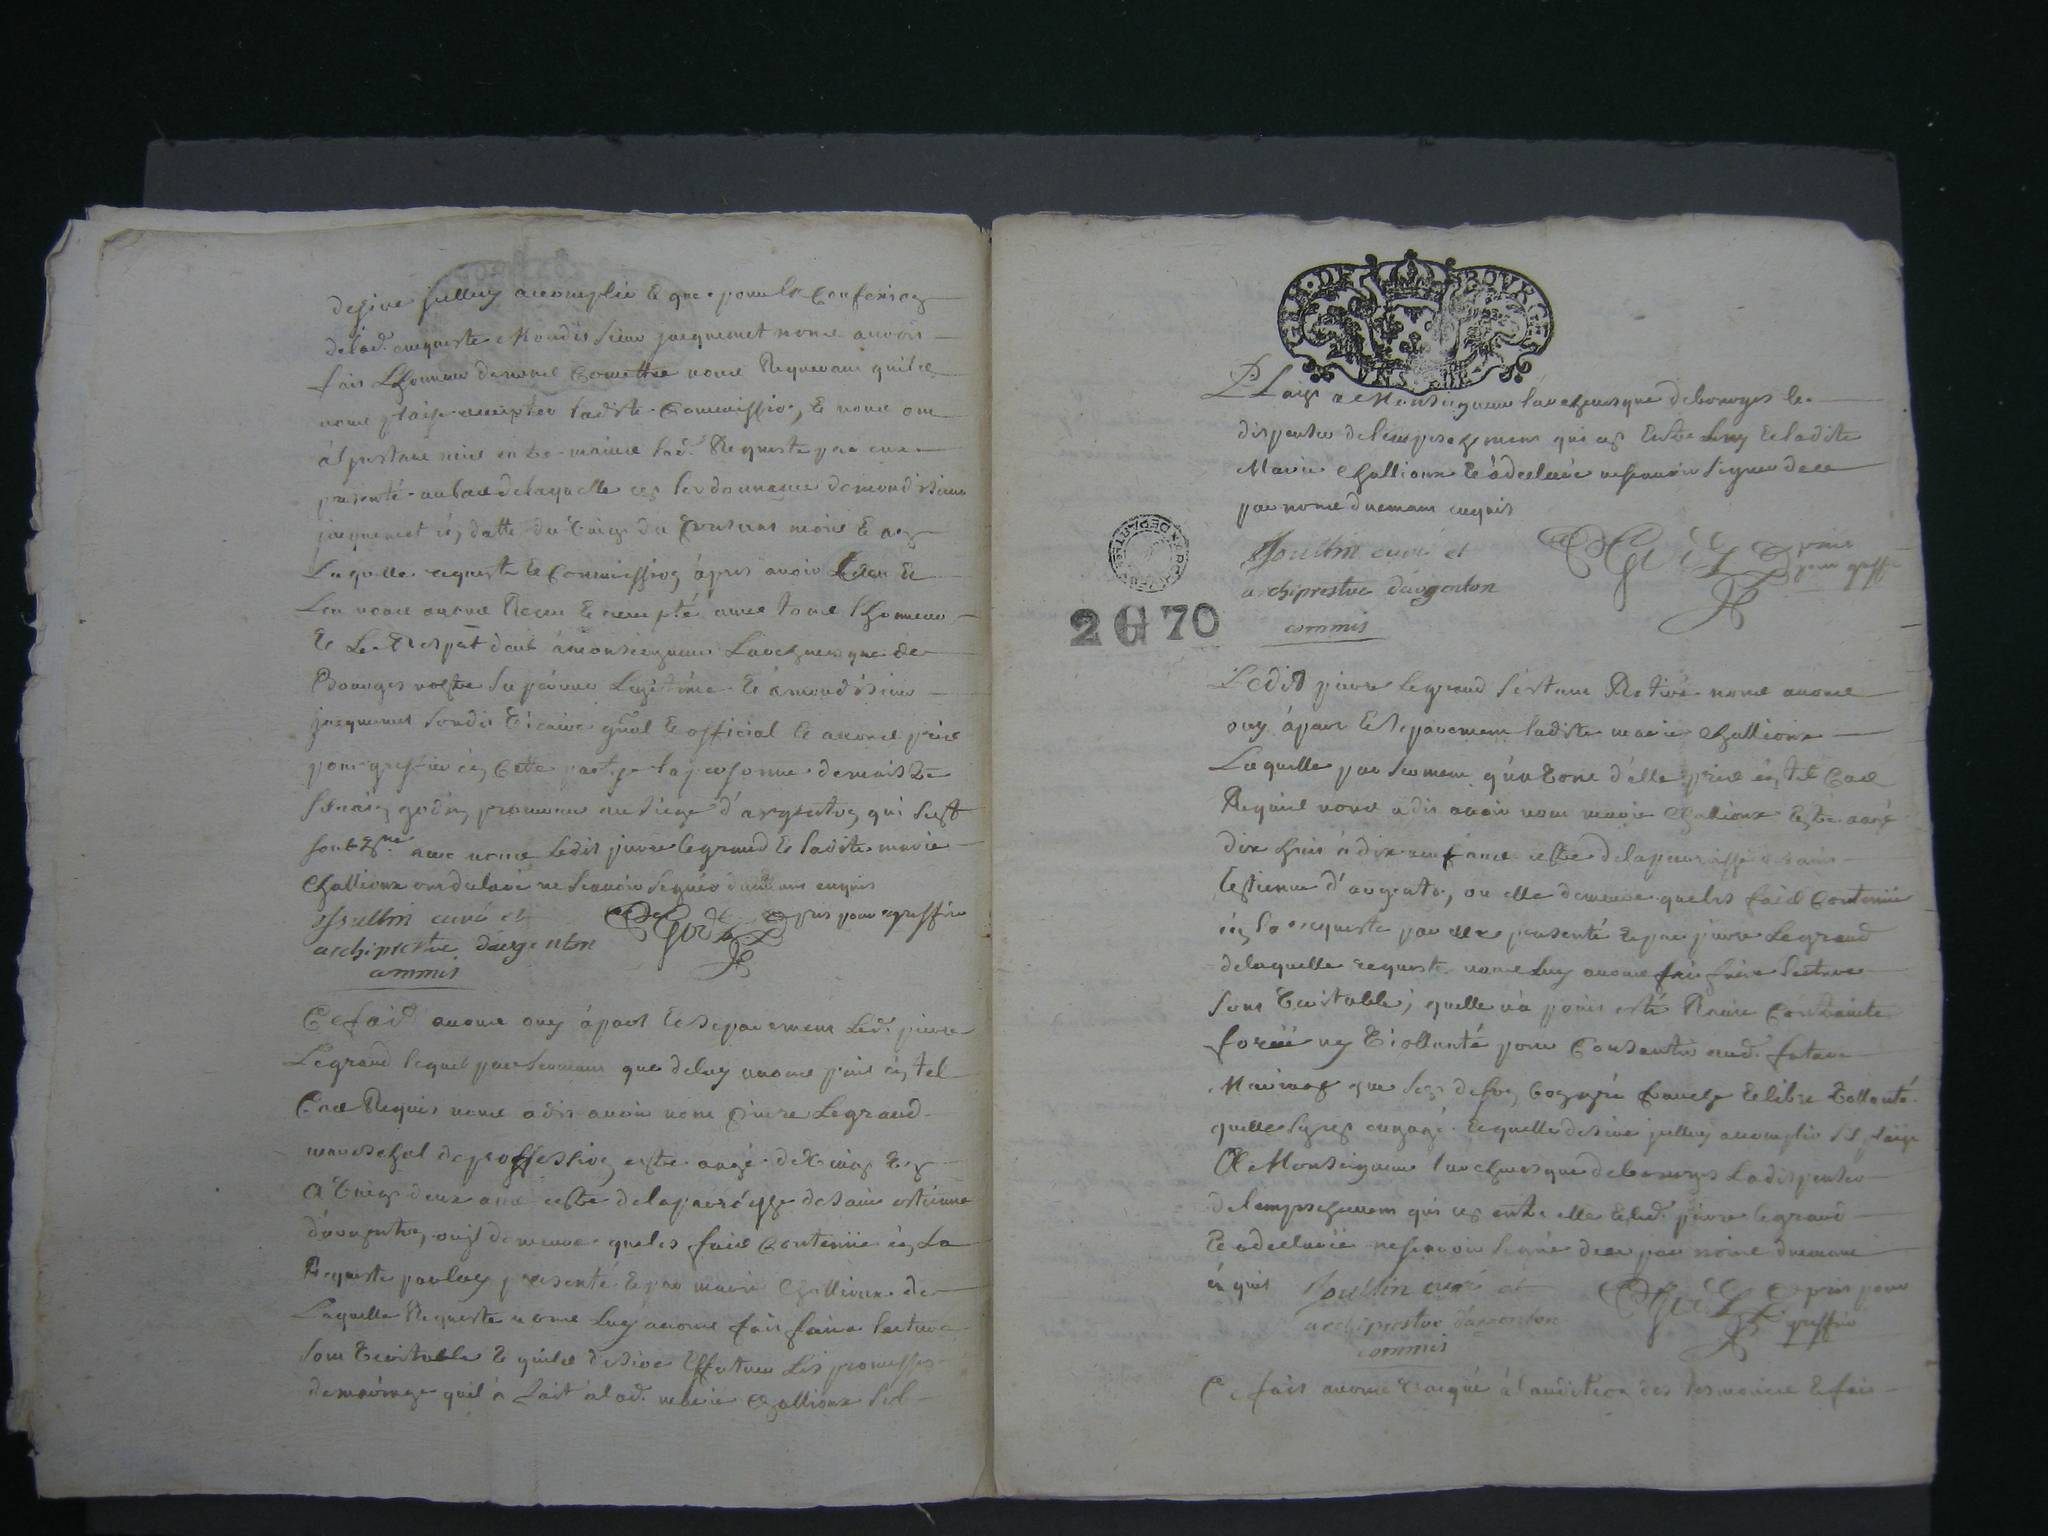 desire jcelluy accomplir et que pour la confection
de lad. enqueste mondit sieur jacquemet nous auroit
fait Lhonneur de nous comettre nous Requerant quil
nous plaise accepter ladite Commission, et nous ont
à l'instant mise en tre mains lad. Requeste par eux
presenté au bas de laquelle est lordonnance de mondit sieur
jacquemet en datte du du present mois et an
Laquelle requeste et commission après avoir et
Leu nous avons Receu et accepté avec tous lhonneur
et Le Respet deub à monseigneur Larchevesque de
Bourges nostre superieur Legitime et à mondit sieur
jacquemet sondit vicaire gnal et official et avons pris
pour greffier en cette partye la personne de maistre
godin procureur au siege d'argenton qui sest
soubzné avec nous Ledit pierre legrand et ladite marie
challioux ont declaré ne scavoir signer enquis
Joullin curé et pris pour greffier
archiprestre dargenton
commis
Ce fait avons ouy à part et separement Led. pierre
Legrand lequel par serment que de luy avons pris en tel
Cas Requis nous a dit avoir nom pierre Legrand
mareschal de proffession estre aagé de vingt et un
à vingt deux ans estre de la parroisse de saint estienne
d'argenton, ou il demeure que les faits contenüe en La
Requeste par luy presenté et par marie challioux de
Laquelle Requeste nous Luy avons fait faire lecture
sont veritable et quil desire Effectuer Les promesses
de mariage quil à fait à lad. marie challioux sil
GENERALITE DE BOURGES
Plaist a Monseigneur larchevesque de bourges le
dispenser de lempeschement qui est Entre Luy et ladite
Marie challioux et à declaré ne scavoir signer de ce
par nous duement enquis
Joullin curé et pris
archiprestre d'argenton pour greffier
commis
2 G 70
Ledit pierre legrand s'estant Retiré nous avons
ouy à part et separement ladite marie challioux
Laquelle par serment qu'avons d'elle pris en tel Cas
Requis nous a dit avoir nom marie challioux estre aagé
dix huit à dix neuf ans estre de la parroisse de saint
Estienne d'argenton, ou elle demeure que les faits contenüe
en la requeste par elle presenté et par pierre Legrand
de laquelle requeste nous Luy avons fait faire lecture
sont veritable, quelle n'a point esté Ravie contrainte
forcée ny viollanté pour consentir aud. futur
Mariage que cest de son bon gré franche et libre vollonté
quelle sy est engagé et quelle desire jcelluy accomplir sil plaist
A Monseigneur larchevesque de bourges La dispenser
de lempeschement qui est entre elle et led. pierre legrand
et à declaré ne scavoir signé de ce par nous duement
enquis Joullin curé et pris pour
archiprestre d'argenton greffier
commis
Ce fait avons vacqué à l'audition des tesmoins et fait